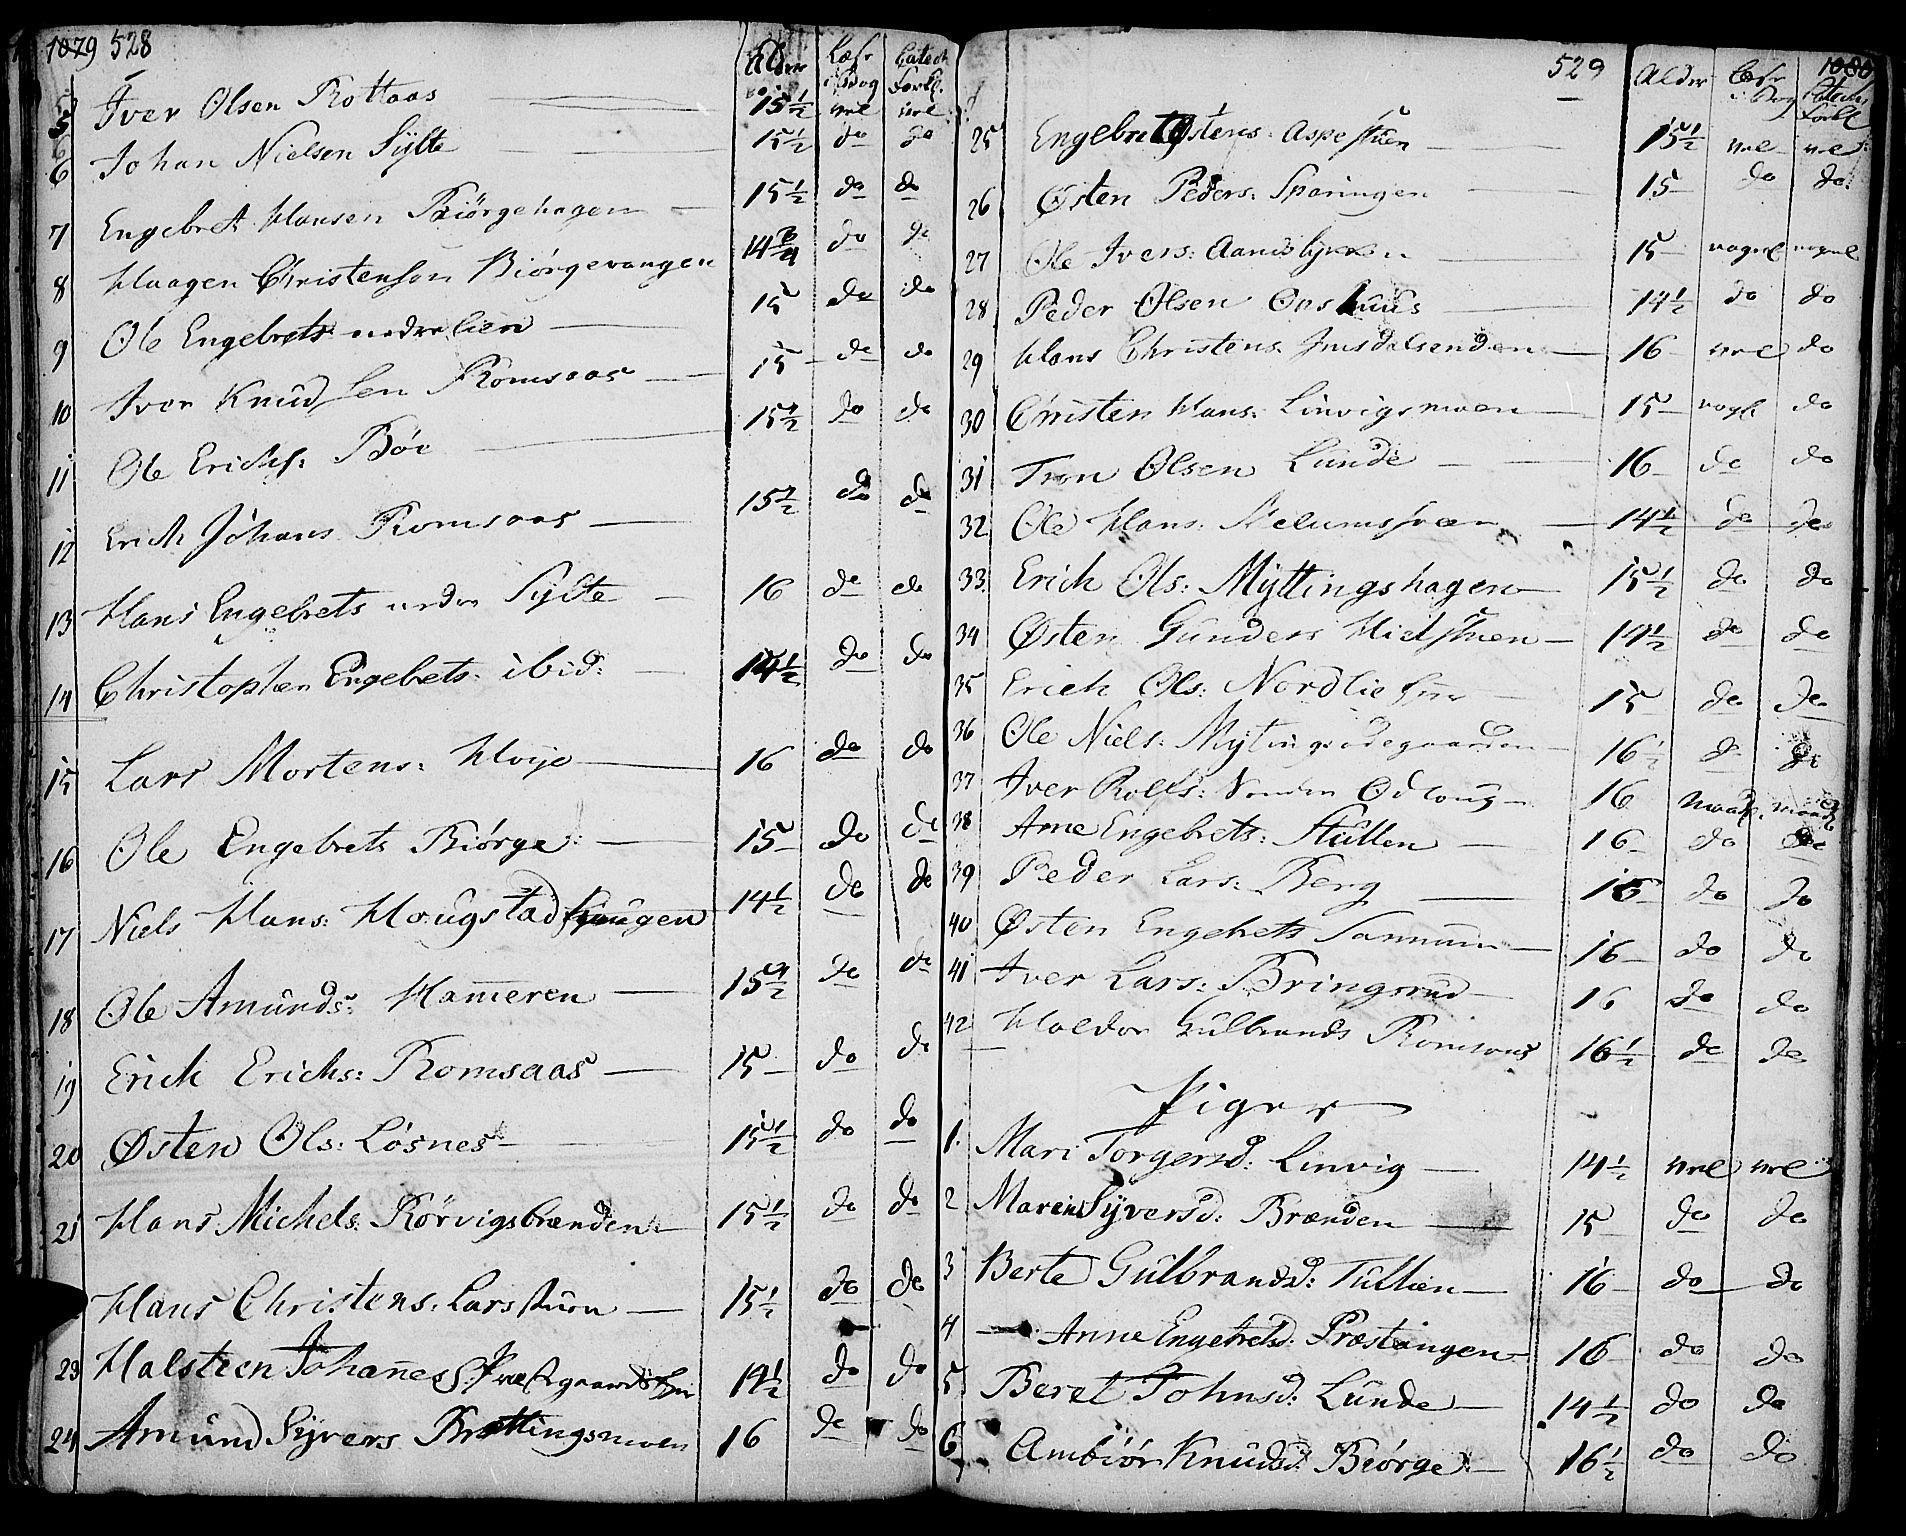 1079 528
Alder Læser i Bog Catech Forkl.
5 Iver Olsen Rottaas 15½ vel vel
6 Johan Nielsen Sÿlte 15½ do do
7 Engebret Hansen Biørgehagen 15½ do do
8 Haagen Christensøn Biørgevangen 14¾ do do
9 Ole Engebrets: nedrelien 15 do do
10 Iver Knudsen Romsaas 15 do do
11 Ole Erichs: Bøe 15½ do do
12 Erich Johans Romsaas 15½ do do
13 Hans Engebrets nedre Sÿlte 16 do do
14 Christopher Engebrets: ibid: 14½ do do
15 Lars Mortens: Hoÿe 16 do do
16 Ole Engebrets Biørge 15 do do
17 Niels Hans: Hougstad 14½ do do
18 Ole Amunds: Ham̄eren 15½ do do
19 Erich Erichs: Romsaas 15 do do
20 Østen Ols: Løsnes 15½ do do
21 Hans Michels: Rørvigsbrænden 15½ do do
Hans Christens: Larsstuen 15½ do do
23 Halsteen Johan̄es: 14½ do do
24 Amund Sÿvers Brættingsmoen 16 do do
529 1080
Alder Læser i Bog Catech Forkl
25 Engebret Østens: Aspestuen 15½ vel vel
26 Østen Peders: Sparingen 15 do do
27 Ole Ivers: 15 nogvel nogvel
28 Peder Olsen Onshuus 14½ do do
29 Hans Christens: Imsdalsenden 16 vel do
30 Christen Hans: Linvigsmoen 15 nogl do
31 Tron Olsen Lunde 16 do do
32 Ole Hans: 14½ do do
33. Erich Ols: Mÿttingshagen 15½ do do
34 Østen Gunders Hielstuen 14½ do do
35 Erich Ols: Nordlie 15 do do
36 Ole Niels: Mÿtingsødegaarden 16½ do do
37 Iver Rolfs: Odloug 16 maadl. maadl
38 Arne Engebrets: Stullen 16 do do
39 Peder Lars: Berg 16 do do
40 Østen Engebrets Sannum 16 do do
41 Iver Lars: Bringsrud 16 do do
42 Haldor Gulbrands Romsaas 16½ do do
Piger
1. Mari Torgersd: Linvig 14½ vel vel
2 Maren Sÿversd: Brænden 15 do do
3 Berte Gulbrandsd: Tullien 16 do do
4 Anne Engebretsd: Præstængen 16 do do
5 Beret Johnsd: Lunde 14½ do do
6 Ambiør Knudsd: Biørge 16½ do do